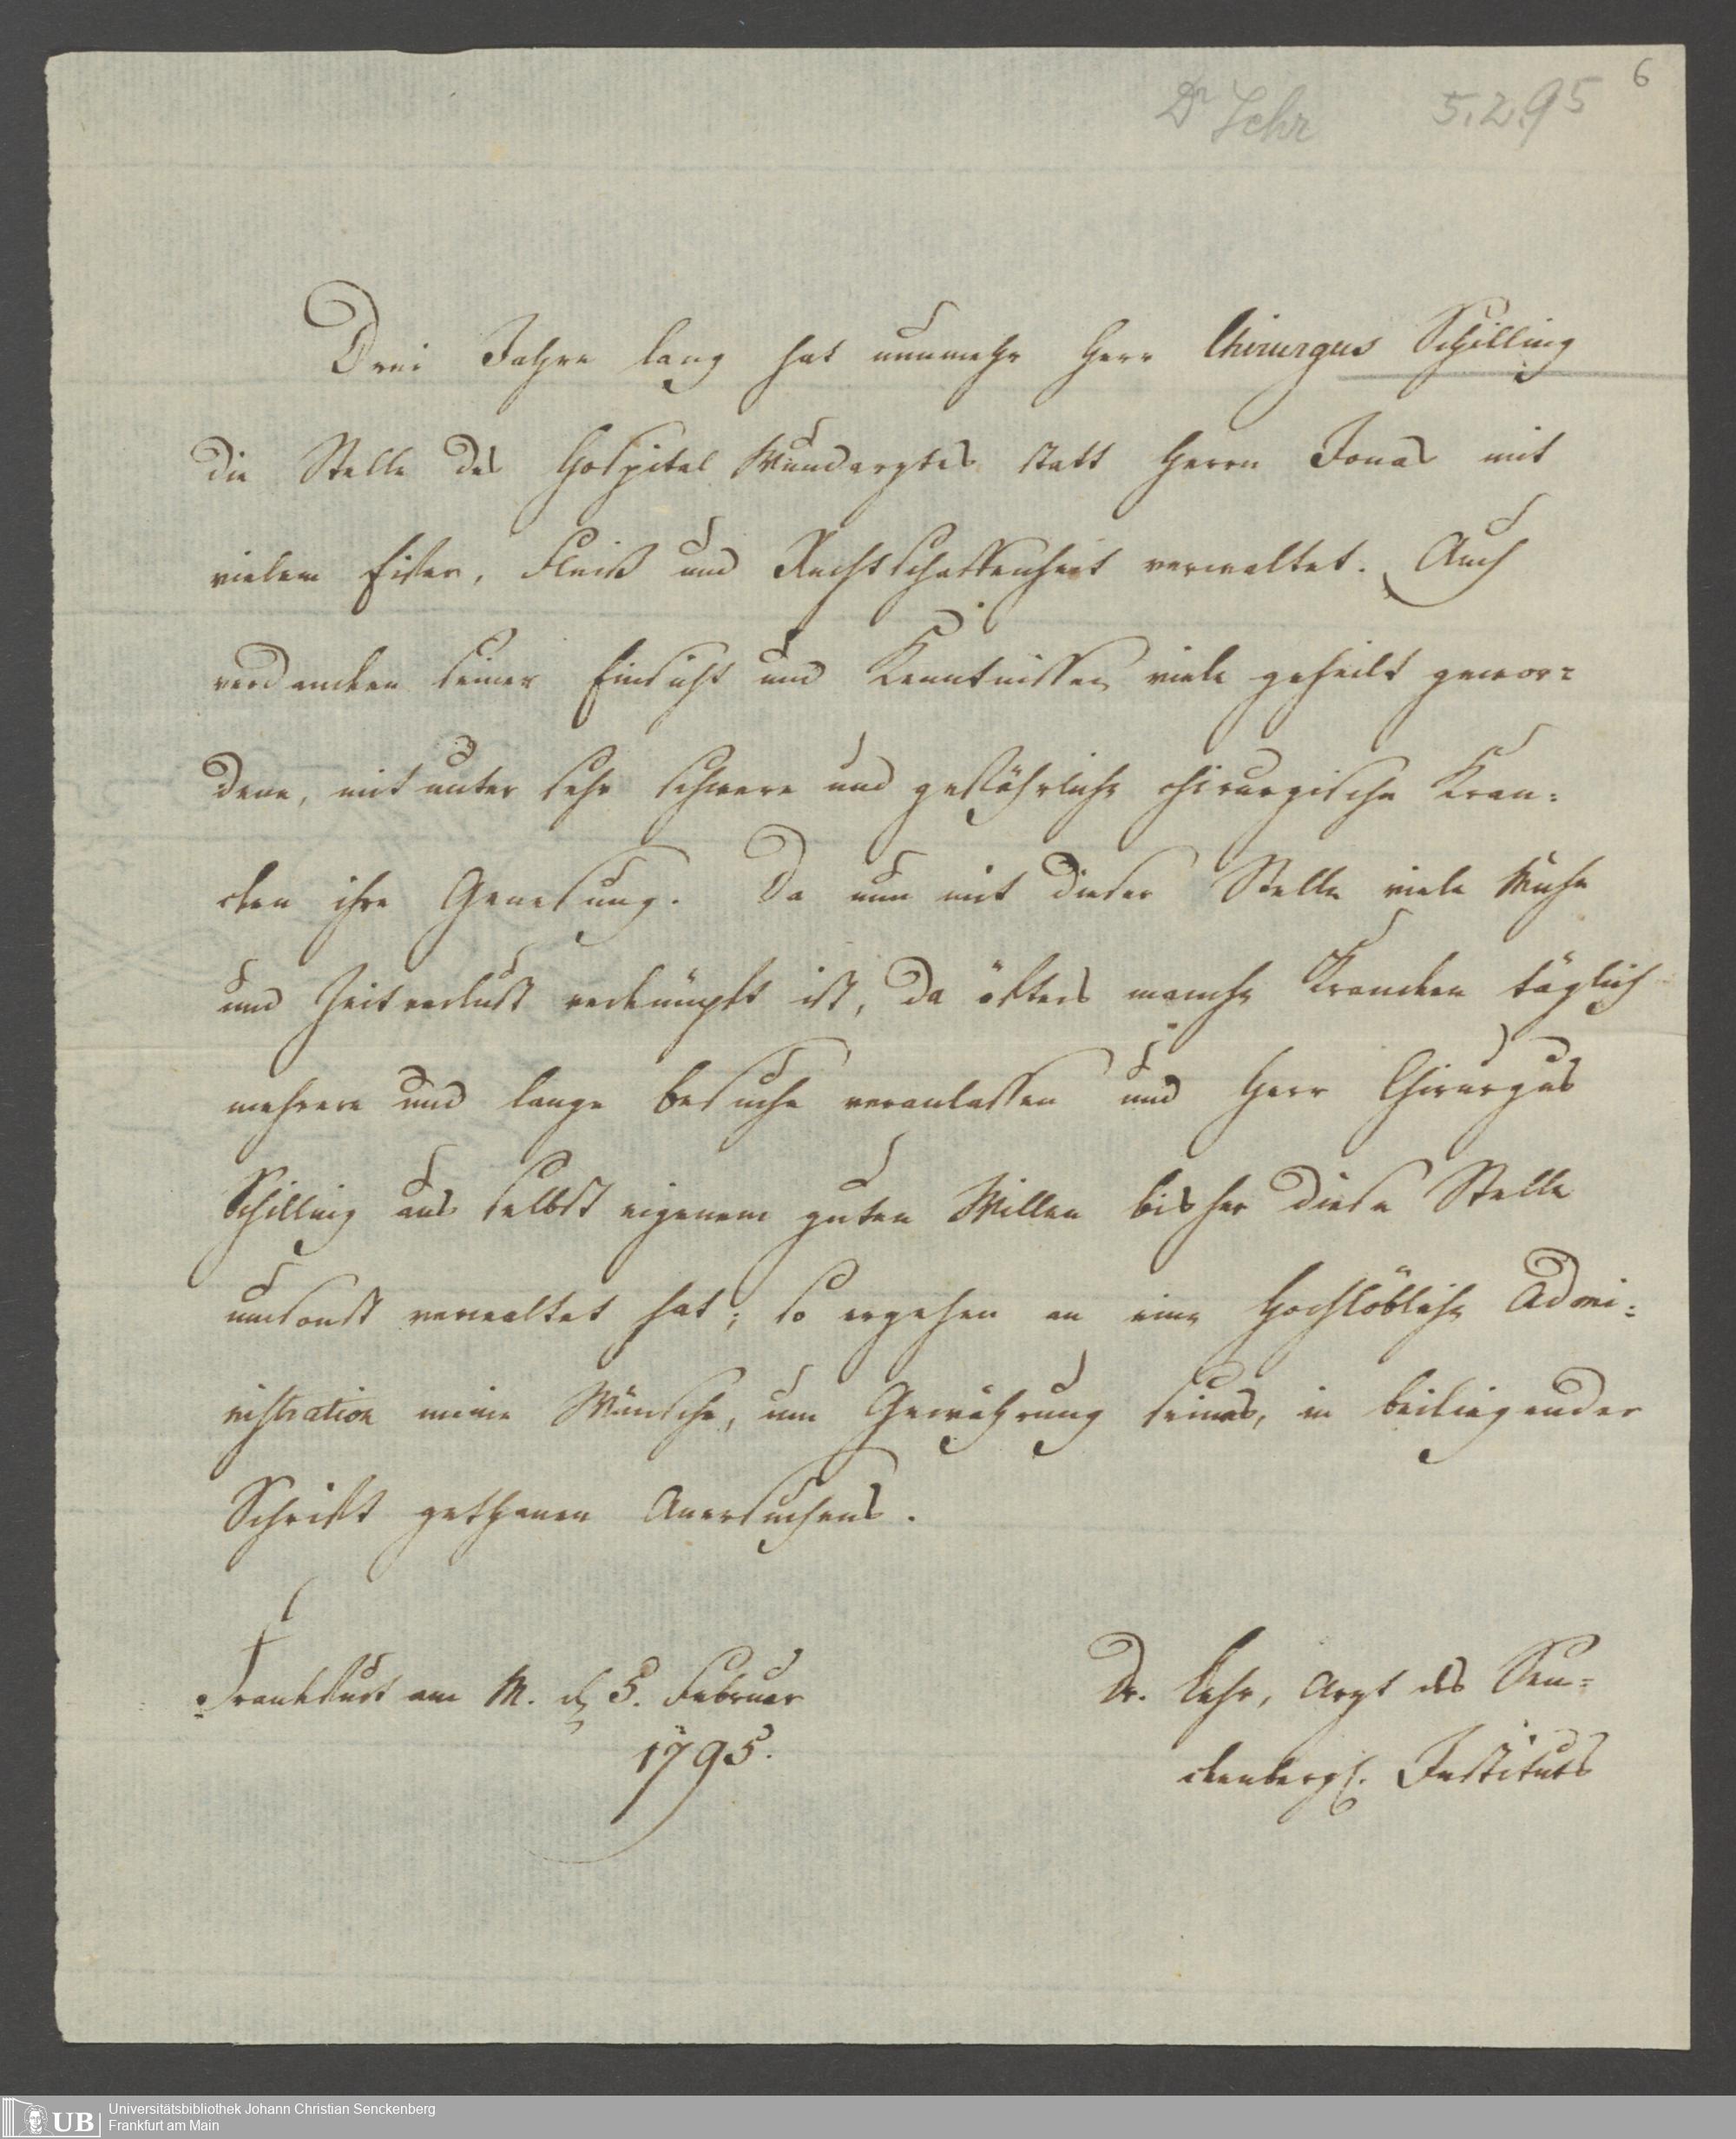 6
Dr Lehr 5.2.95
Drei Jahre lang hat nunmehr Herr Chirurgus Schilling
die Stelle des Hospital Wundarztes statt Herrn Jonas mit
vielem Eifer, Fleiß und Rechtschaffenheit verwaltet. Auch
verdancken seiner Einsicht und Kenntnissen viele geheilt gewor=
dene, mit unter sehr schwere und gefährliche chirurgische Kran=
cken ihre Genesung. Da nun mit dieser Stelle viele Mühe
und Zeitverlust verknüpft ist, da öfters manche Krancken täglich
mehrere und lange Besuche veranlassen und Herr Chirurgus
Schilling aus selbst eigenem guten Willen bisher diese Stelle
umsonst verwaltet hat; so ergehen an eine Hochlöbliche Admi=
nistration meine Wünsche, um Gewährung seines, in beiliegender
Schrift gethanen Anersuchens.
Frankfurt am M. d. 5. Februar
1795.
Dr. Lehr, Arzt des Sen=
ckenbergs. Instituts
UB Universitätsbibliothek Johann Christian Senckenberg
Frankfurt am Main